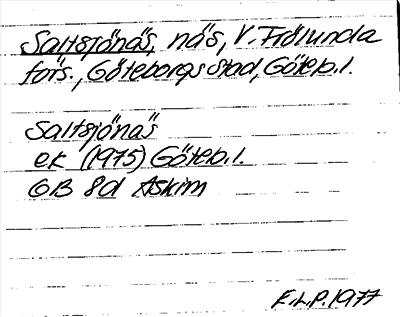 Saltsjönäs, näs, V. Frölunda
förs., Göteborgs stad, Göteb.l.
Saltsjönäs
ek (1975) Göteb.l.
GB 8d Askim
E.L.P. 1977